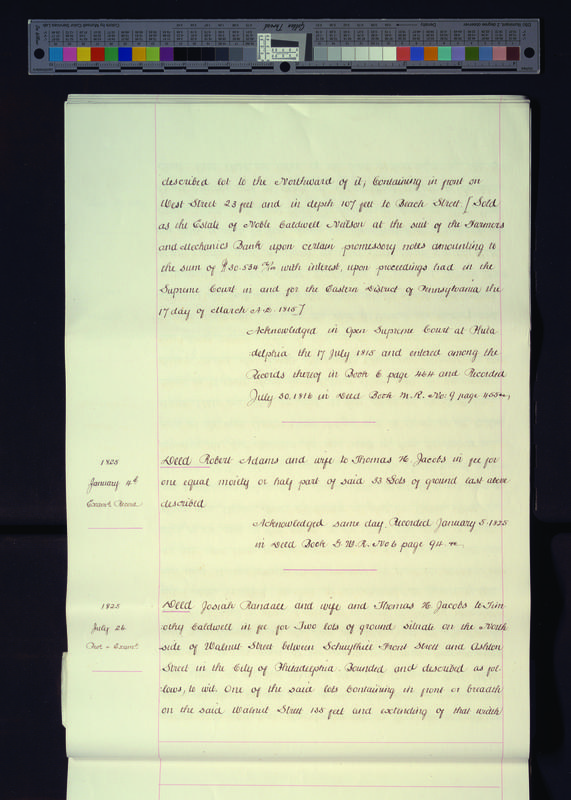 described lot to the Northward of it; Containing in front on
West Street 23 feet and in depth 107 feet to Beach Street [Sold
as the Estate of Noble Caldwell Neilson at the suit of the Farmers
and Mechanics Bank upon certain promissory notes amounting to
the sum of $30.534 with interest, upon proceedings had in the
Supreme Court in and for the Eastern District of Pennsylvania the
17 day of March A.D. 1815]
Acknowledged in Open Supreme Court at Phila
delphia the 17 July 1815 and entered among the
Records thereof in Book E page 464 and Recorded
July 30, 1816 in Deed Book M.R. No: 9 page 455 &c,
1825
January 4th
Examd. Record
Deed Robert Adams and wife to Thomas H. Jacobs in fee for
one equal moiety or half part of said 53 Lots of ground last above
described
Acknowledged same day, Recorded January 5. 1825
in Deed Book G.W.R. No 6 page 94. &c.
1825
July 26
Deed Josiah Randall and wife and Thomas H. Jacobs to Tim
othy Caldwell in fee for Two lots of ground situate on the North
side of Walnut Street between Schuylkill Front Street and Ashton
Street in the City of Philadelphia. Bounded and described as fol-
lows, to wit. One of the said lots Containing in front or breadth
on the said Walnut Street 135 feet and extending of that width